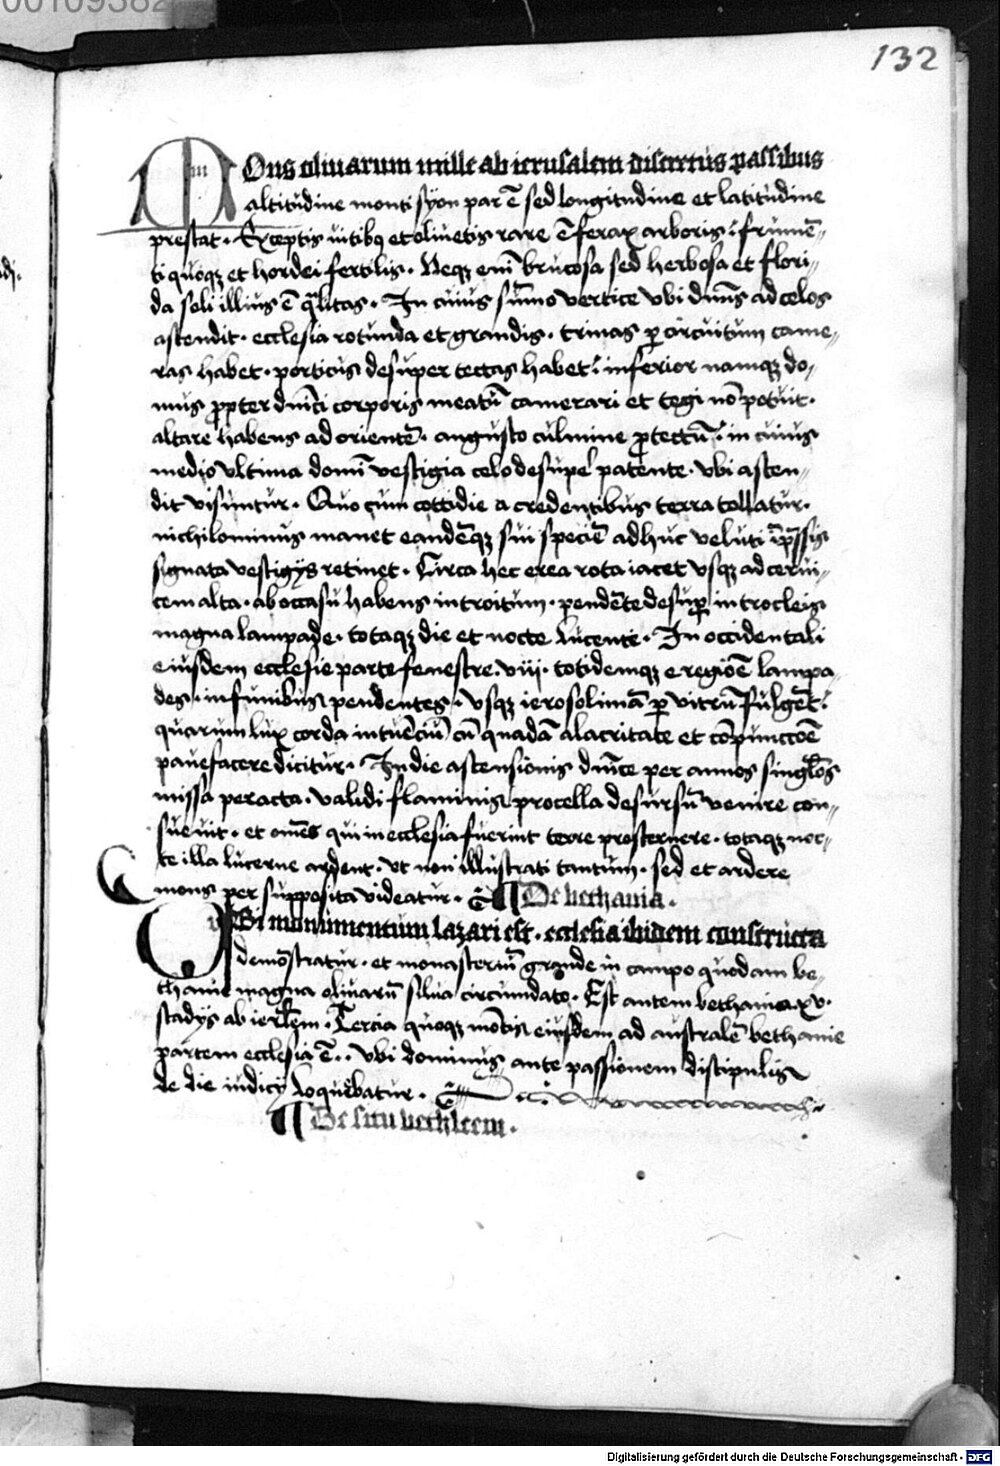 00109382
132
MOns oliuarum mille ab ierusalem discretus passibus
altitudine monti syon par ē sed longitudine et latitudine
prestat. Exceptis uitibꝯ et oliuetis rare ē ferax arboris: frumē-
ti quoqꝫ et hordei fertilis. Neqꝫ eni᷒ brucosa sed herbosa et flori-
da soli illius ē q̄litas. In cuius sūmo vertice vbi dn̄us ad celos
ascendit. ecclesia rotunda et grandis. trinas ꝑ circuitum came-
ras habet. porticus desuper tectas habet: inferior namqꝫ do-
mus ꝓpter dn̄ici corporis meatū camerari et tegi nō potuit.
altare habens ad orientē. angusto culmine ꝓtectū: in cuius
medio vltima domī vestigia celo desuꝑ patente. vbi ascen-
dit visuntur. Quo cum cottidie a credentibus terra tollatur.
nichilominus manet eandēqꝫ sui speciē adhuc veluti īpressis
signata vestigijs retinet. Circa hec erea rota iacet vsqꝫ ad cerui-
cem alta. ab occasu habens introitum. pendēte desuꝑ in trocleis
magna lampade. totaqꝫ die et nocte lucente. In occidentali
eiusdem ecclesie parte fenestre. viij. totidemqꝫ e regiōe lampa-
des. in funibus pendentes. vsqꝫ ierosolimā ꝑ vitrū fulgēt:
quarum lux corda intuēciū cū quadā alacritate et cōpunccōe
pauefacere dicitur. In die ascensionis dn̄ice per annos singl̄os
missa peracta. validi flaminis procella desursū venire con-
sueuit. et om̄es qui in ecclesia fuerint terre prosternere. totaqꝫ noc-
te illa lucerne ardent. vt non illustrati tantum. sed et ardere
mons per supposita videatur. ¶ De bethania.
UBi monumentum lazari est. ecclesia ibidem constructa
demōstratur. et monasteriū grande in campo quodam be-
thanie magna oliuarū silua circumdato. Est autem bethania. xv.
stadijs ab ierl̄em. Tercia quoqꝫ mōtis eiusdem ad australē bethanie
partem ecclesia ē.. vbi dominus ante passionem discipulis
de die iudicij loquebatur.
¶ De situ bethleem.
Digitalisierung gefördert durch die Deutsche Forschungsgemeinschaft - DFG